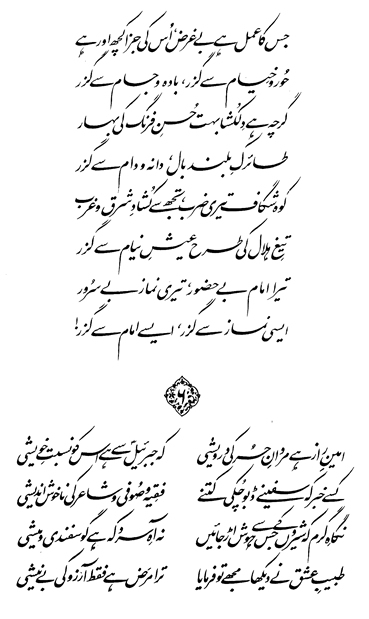 جس کا عمل ہے بے غرض' اُس کی جزا کچھ اور ہے
حور و خیام سے گزر، بادہ و جام سے گزر
گرچہ ہے دلکشا بہت حُسنِ فرنگ کی بہار
طائرکِ بلند بال' دانہ و دام سے گزر
کوہ شگاف تیری ضرب' تجھ سے کُشادِ شرق و غرب
تیغِ ہلال کی طرح عیشِ نیام سے گزر
تیرا امام بے حضور' تیری نماز بے سرور
ایسی نماز سے گزر' ایسے امام سے گزر!
۶
امینِ راز ہے مردانِ حُر کی درویشی کہ جبرئیلؑ سے ہے اس کو نسبتِ خویشی
کسے خبر کہ سفینے ڈبو چکی کتنے فقیہ و صوفی و شاعر کی ناخوش اندیشی
نگاہِ گرم کہ شیروں کے جس سے ہوش اڑ جائیں نہ آہِ سرد کہ ہے گوسفندی و میشی
طبیبِ عشق نے دیکھا مجھے تو فرمایا ترا مرض ہے فقط آرزو کی بے نیشی